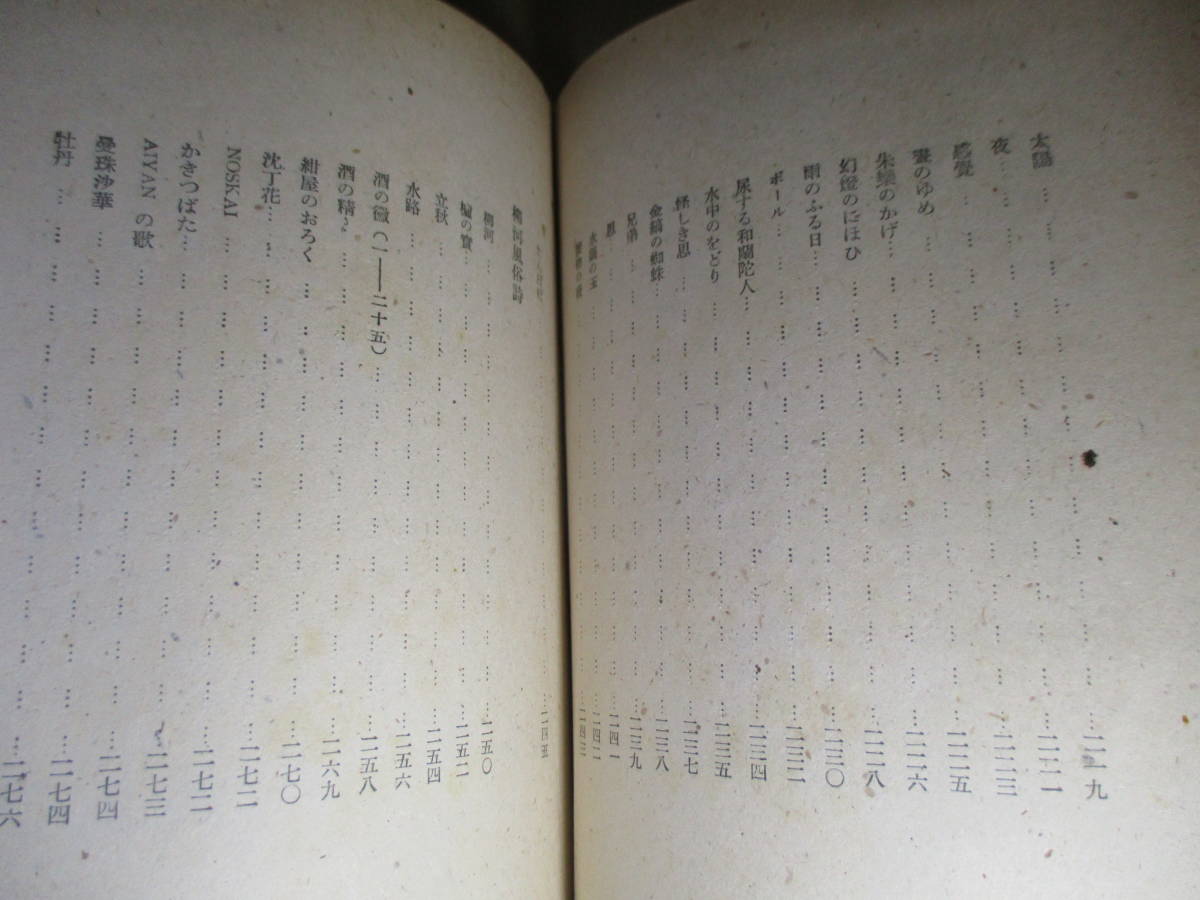 太陽 … … … … … … … … 二一九
夜… … … … … … … … 二二一
感覺 … … … … … … … … 二二三
晝のゆめ … … … … … … … 二二五
朱欒のかげ… … … … … … … 二二六
幻燈のにほひ … … … … … … 二二八
雨のふる日… … … … … … … 二三〇
ボール … … … … … … … 二三二
尿する和蘭陀人… … … … … … 二三四
水中のをどり … … … … … … 二三五
怪しき思 … … … … … … … 二三七
金縞の蜘蛛… … … … … … … 二三八
兄弟 … … … … … … … … 二三九
思 … … … … … … … … 二四一
水銀の玉 … … … … … … … 二四二
… … … … … … … 二四三
… … … … … … … 二四五
柳河風俗詩
柳河 … … … … … … … … 二五〇
櫨の實… … … … … … … … 二五二
立秋 … … … … … … … … 二五四
水路 … … … … … … … … 二五六
酒の黴(一——二十五)… … … … … 二五八
酒の精 … … … … … … … 二六九
紺屋のおろく … … … … … … 二七〇
沈丁花… … … … … … … … 二七二
NOSKAI … … … … … … … 二七二
かきつばた… … … … … … … 二七三
AIYAN の歌 … … … … … … 二七四
曼珠沙華 … … … … … … … 二七四
牡丹 … … … … … … … … 二七六